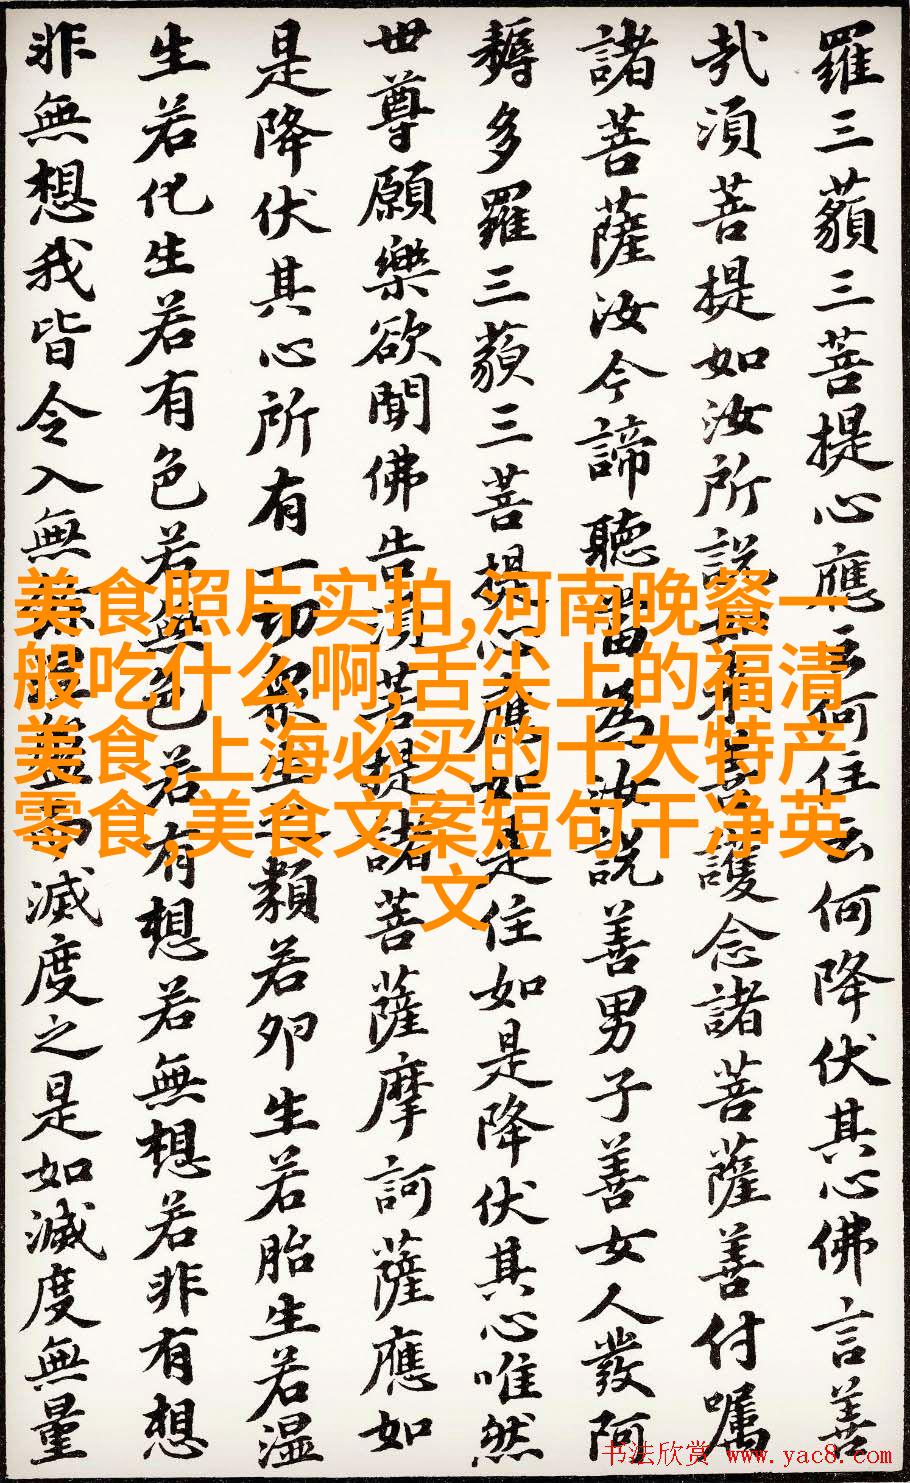 羅三藐三菩提心應云何住云何降伏其心佛言善
哉須菩提如汝所說如來善護念諸菩薩善付囑
諸菩薩汝今諦聽當為汝說善男子善女人發阿
耨多羅三藐三菩提心應如是住如是降伏其心唯然
世尊願樂欲聞佛告須菩提諸菩薩摩訶薩應如
是降伏其心所有一切眾生之類若卵生若胎生若湿
生若化生若有色若無色若有想若無想若非有想
非無想我皆令入無餘涅槃而滅度之是如滅度無量
美食照片实拍,河南晚餐一
般吃什么啊,舌尖上的福清
美食,上海必买的十大特产
零食,美食文案短句干净英
文
书法欣赏 www.yac8.com